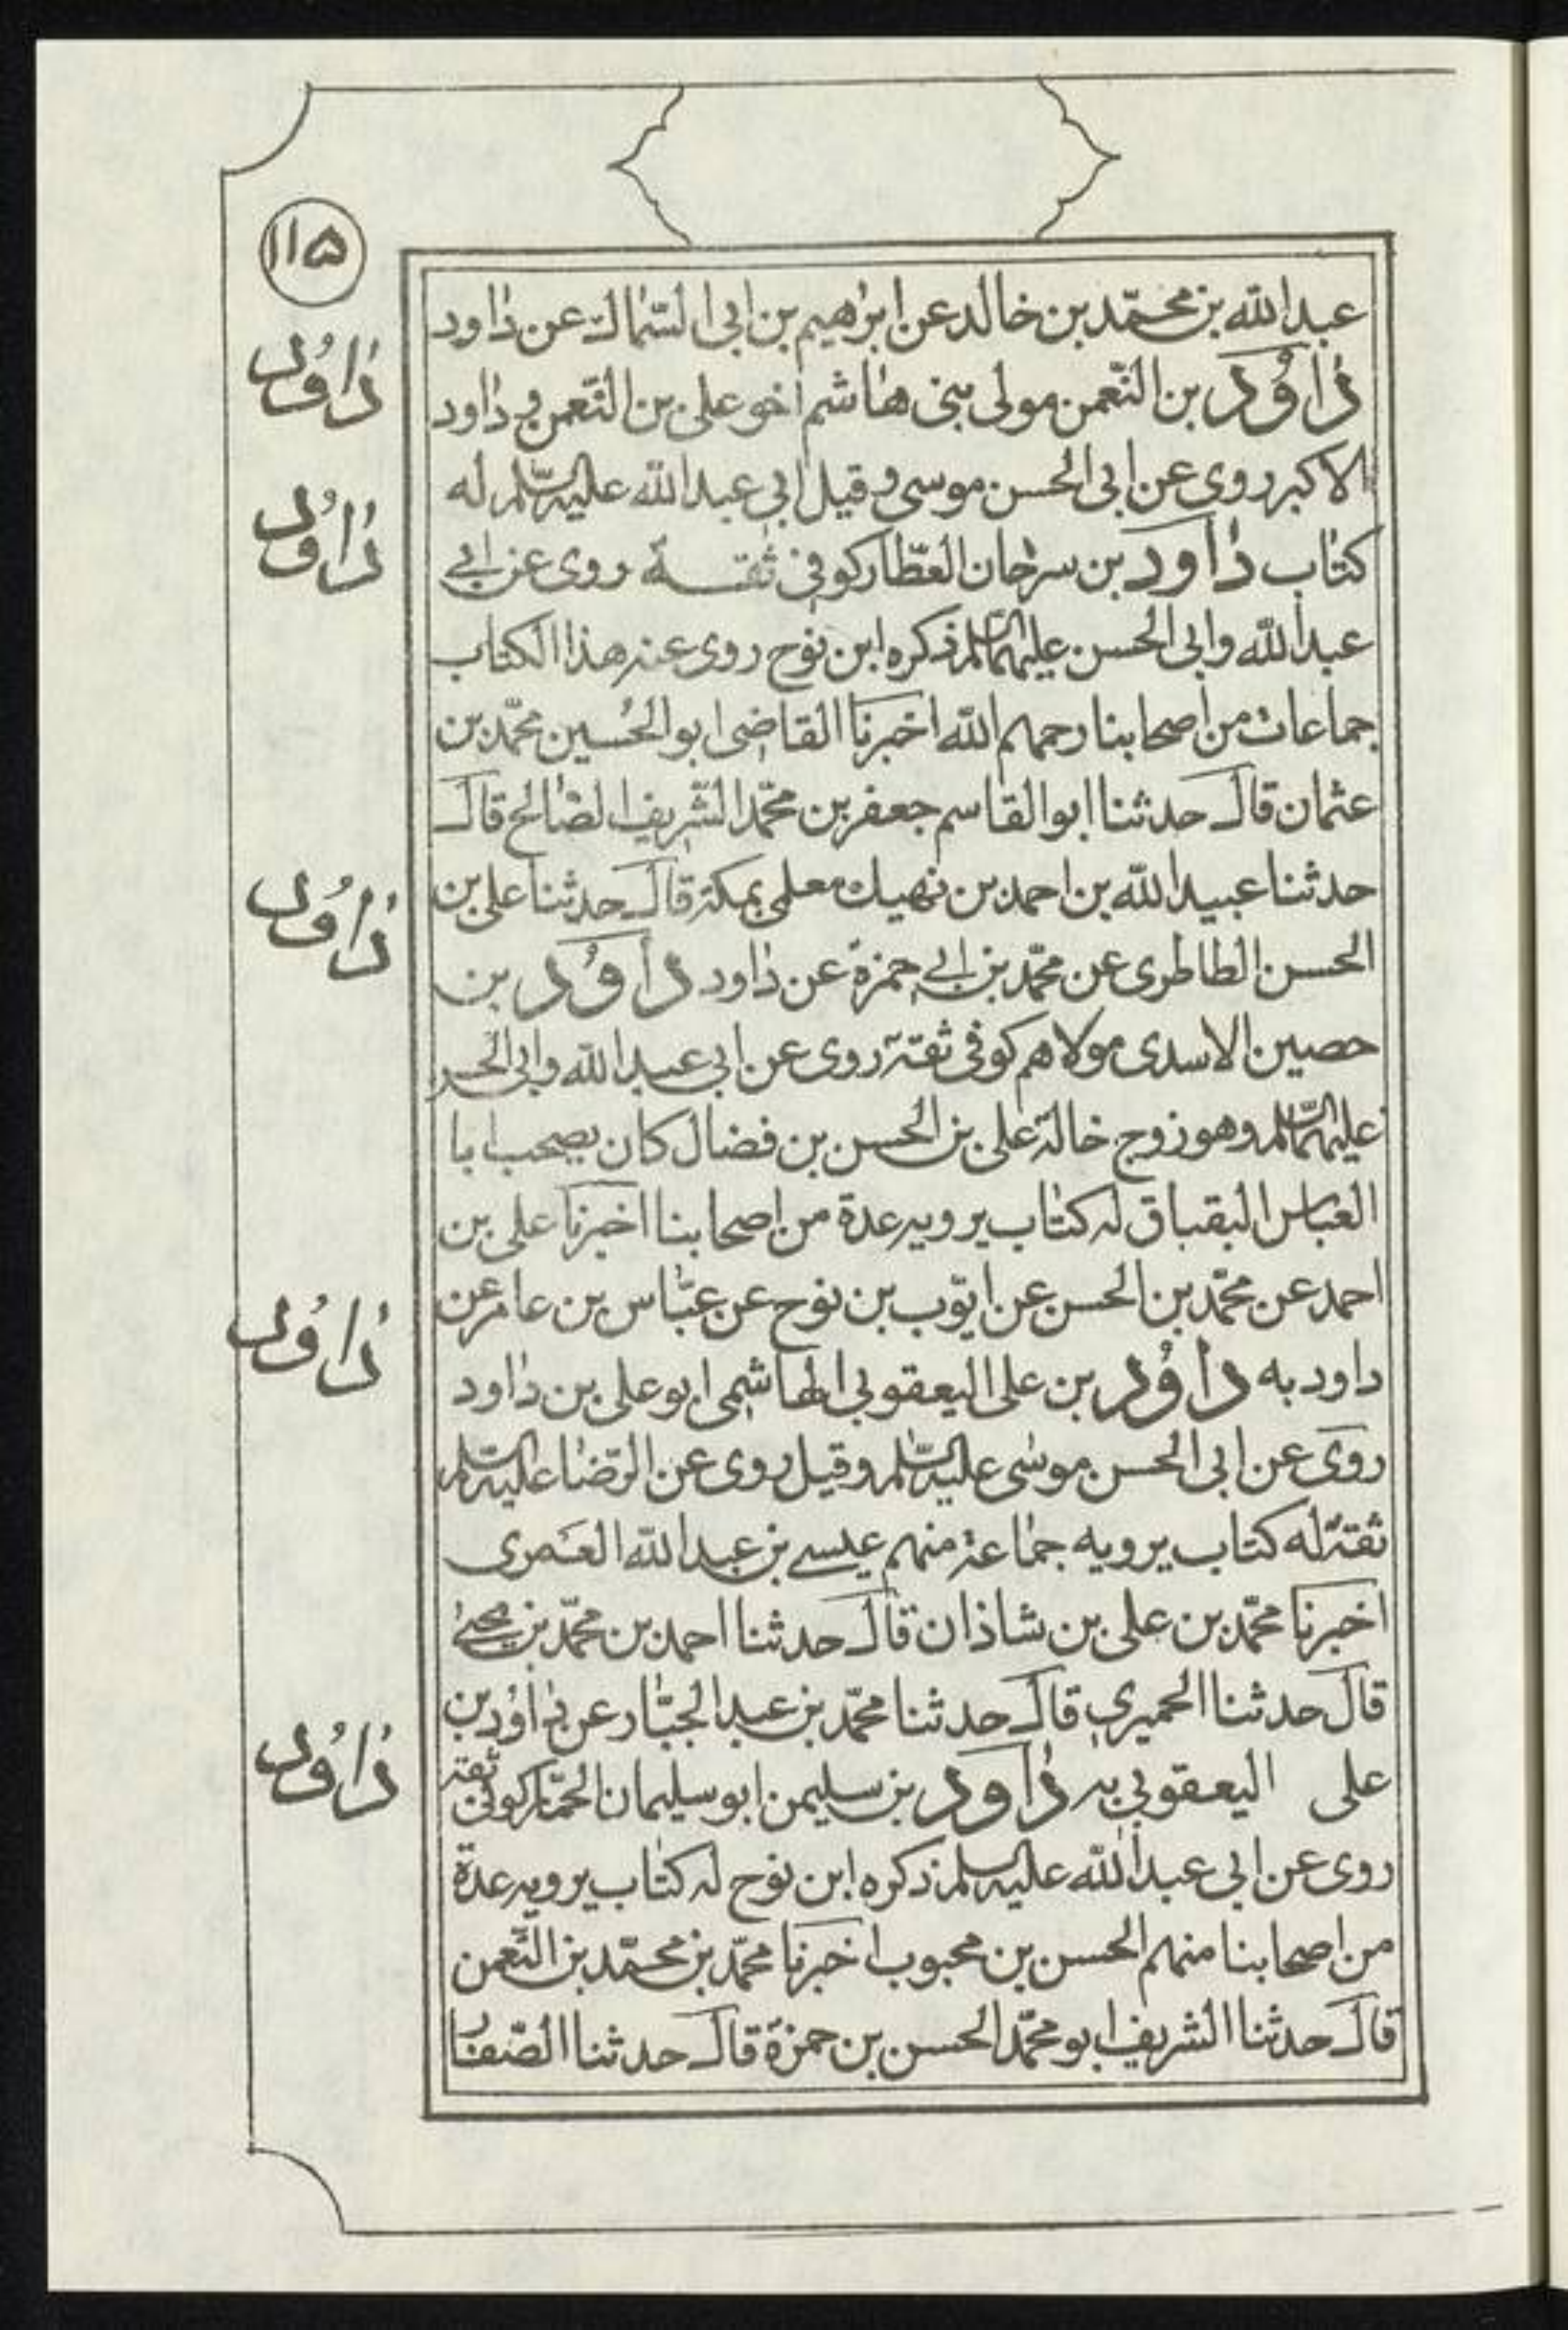 ١١۵
عبدالله بن محمّد بن خالد عن ابراهيم بن ابى السّمّاك عن داود
داوُد بن النّعمن مولى بنى هاشم اخو على بن النّعمن و داود
الاكبر روى عن ابى الحسن موسى و قيل ابى عبدالله عليه السّلم له
كتاب داود بن سرحان العطّار كوفى ثقــة روى عن ابى
عبدالله وابى الحسن عليهما السّلم ذكره ابن نوح روى عنه هذا الكتاب
جماعات من اصحابنا رحمهم الله اخبرنا القاضى ابو الحُسين محمّد بن
عثمان قال حدثنا ابو القاسم جعفر بن محمّد الشّريف الصّالح قال
حدثنا عبيدالله بن احمد بن نهيك معلمى بمكة قال حدثنا على بن
الحسن الطاطرى عن محمّد بن ابى حمزة عن داود داوُد بن
حصين الاسدى مولاهم كوفى ثقة روى عن ابى عبدالله وابى الحسن
عليهما السّلم وهو زوج خالة على بن الحسن بن فضال كان يصحب ابا
العباس البقباق له كتاب يرويه عدة من اصحابنا اخبرنا على بن
احمد عن محمّد بن الحسن عن ايّوب بن نوح عن عبّاس بن عامر عن
داود به داوُد بن على اليعقوبى الهاشمى ابو على بن داود
روى عن ابى الحسن موسى عليه السّلم وقيل روى عن الرّضا عليه السّلم
ثقة له كتاب يرويه جماعة منهم عيسى بن عبدالله العمرى
اخبرنا محمّد بن على بن شاذان قال حدثنا احمد بن محمّد بن يحيى
قال حدثنا الحميرى قال حدثنا محمّد بن عبدالجبّار عن داوُد بن
على اليعقوبى به داود بن سليمن ابو سليمان الحمّار كوفى ثقة
روى عن ابى عبدالله عليه السلم ذكره ابن نوح له كتاب يرويه عدة
من اصحابنا منهم الحسن بن محبوب اخبرنا محمّد بن محمّد بن النّعمن
قال حدثنا الشريف ابو محمّد الحسن بن حمزة قال حدثنا الصّفار
داوُد
داوُد
داوُد
داوُد
داوُد